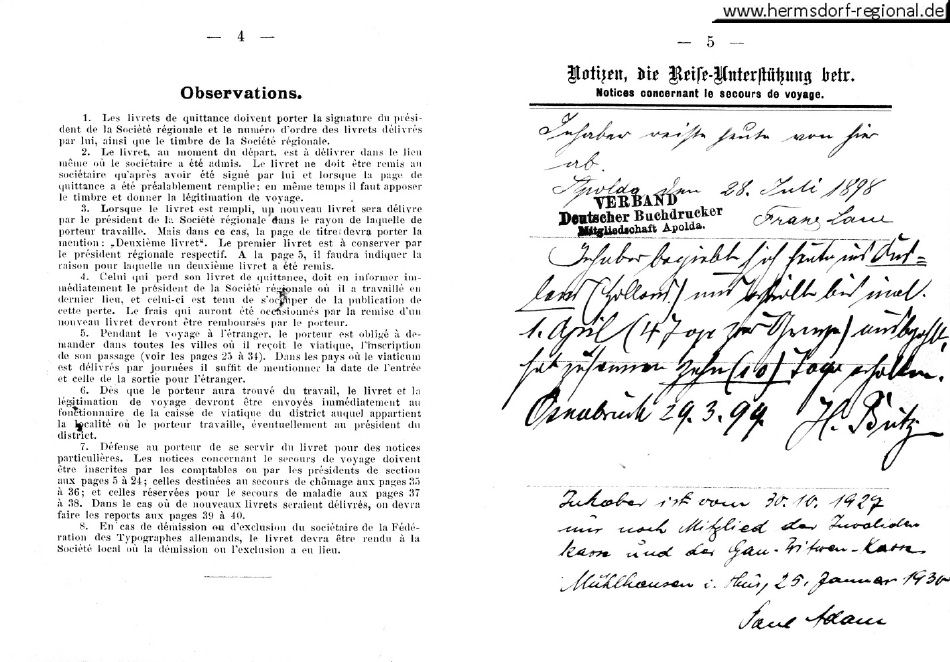 www.hermsdorf-regional.de
— 4 —
Observations.
1. Les livrets de quittance doivent porter la signature du prési-
dent de la Société régionale et le numéro d'ordre des livrets délivrés
par lui, ainsi que le timbre de la Société régionale.
2. Le livret, au moment du départ, est à délivrer dans le lieu
même où le sociétaire a été admis. Le livret ne doit être remis au
sociétaire qu'après avoir été signé par lui et lorsque la page de
quittance a été préalablement remplie; en même temps il faut apposer
le timbre et donner la légitimation de voyage.
3. Lorsque le livret est rempli, un nouveau livret sera délivre
par le président de la Société régionale dans le rayon de laquelle de
porteur travaille. Mais dans ce cas, la page de titre devra porter la
mention: „Deuxième livret“. Le premier livret est à conserver par
le président régionale respectif. A la page 5, il faudra indiquer la
raison pour laquelle un deuxième livret a été remis.
4. Celui qui perd son livret de quittance, doit en informer im-
médiatement le président de la Société régionale où il a travaillé en
dernier lieu, et celui-ci est tenu de s'occuper de la publication de
cette perte. Le frais qui auront été occasionnés par la remise d'un
nouveau livret devront être remboursés par le porteur.
5. Pendant le voyage à l'étranger, le porteur est obligé à de-
mander dans toutes les villes où il reçoit le viatique, l'inscription
de son passage (voir les pages 25 à 34). Dans les pays où le viaticum
est délivrés par journées il suffit de mentionner la date de l'entrée
et celle de la sortie pour l'étranger.
6. Dès que le porteur aura trouvé du travail, le livret et la
légitimation de voyage devront être envoyés immédiatement au
fonctionnaire de la caisse de viatique du district auquel appartient
la localité où le porteur travaille, éventuellement au président du
district.
7. Défense au porteur de se servir du livret pour des notices
particulières. Les notices concernant le secours de voyage doivent
être inscrites par les comptables ou par les présidents de section
aux pages 5 à 24; celles destinées au secours de chômage aux pages 35
à 36; et celles réservées pour le secours de maladie aux pages 37
à 38. Dans le cas où de nouveaux livrets seraient délivrés, on devra
faire les reports aux pages 39 à 40.
8. En cas de démission ou d'exclusion du sociétaire de la Fédé-
ration des Typographes allemands, le livret devra être rendu à la
Société local où la démission ou l'exclusion a en lieu.
— 5 —
Notizen, die Reise-Unterstützung betr.
Notices concernant le secours de voyage.
Inhaber reiste heute von hier
ab.
Apolda den 28. Juli 1898
VERBAND
Deutscher Buchdrucker
Mitgliedschaft Apolda.
Franz
Inhaber begiebt sich heute ins Aus-
land (Holland) und erhielte bis incl.
1. April (4 Tage zur Grenze) ausbezahlt,
hat zusammen Zehn (10) Tage erhalten.
Osnabrück 29.3.99. H. Butz
Inhaber ist vom 30.10.1927
nur noch Mitglied der Invaliden
kasse und der Gau-Witwen-Kasse
Mühlhausen i. Thür, 25. Januar 1930
Paul Adam